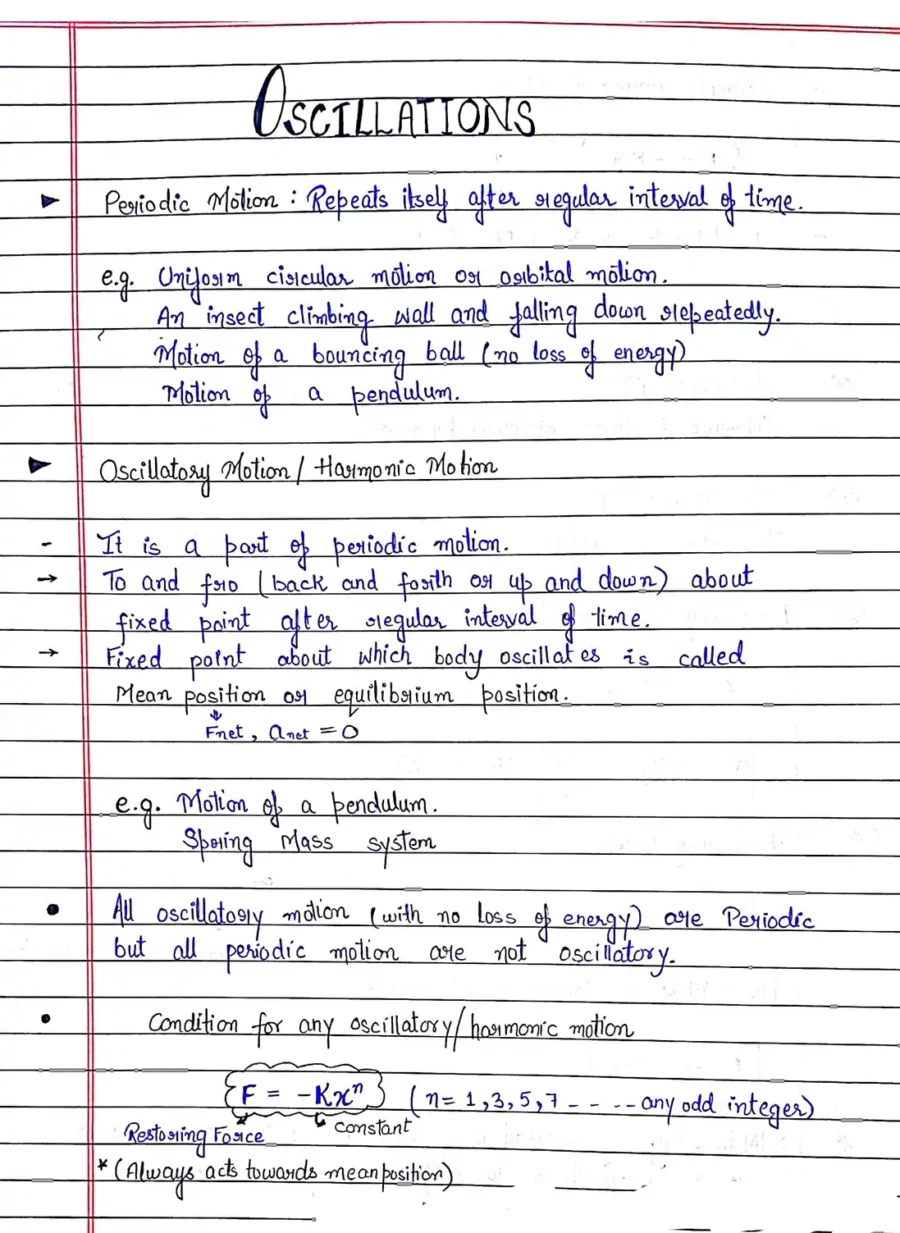 OSCILLATIONS
► Periodic Motion : Repeats itself after regular interval of time.
e.g. Uniform circular motion or orbital motion.
An insect climbing wall and falling down repeatedly.
Motion of a bouncing ball (no loss of energy)
Motion of a pendulum.
► Oscillatory Motion / Harmonic Motion
- It is a part of periodic motion.
→ To and fro (back and forth or up and down) about
fixed point after regular interval of time.
→ Fixed point about which body oscillates is called
Mean position or equilibrium position.
Fnet, anet = 0
e.g. Motion of a pendulum.
Spring Mass system
• All oscillatory motion (with no loss of energy) are Periodic
but all periodic motion are not oscillatory.
• Condition for any oscillatory/harmonic motion
F = -Kxⁿ (n= 1,3,5,7 - - - - any odd integer)
Restoring Force constant
* (Always acts towards mean position)